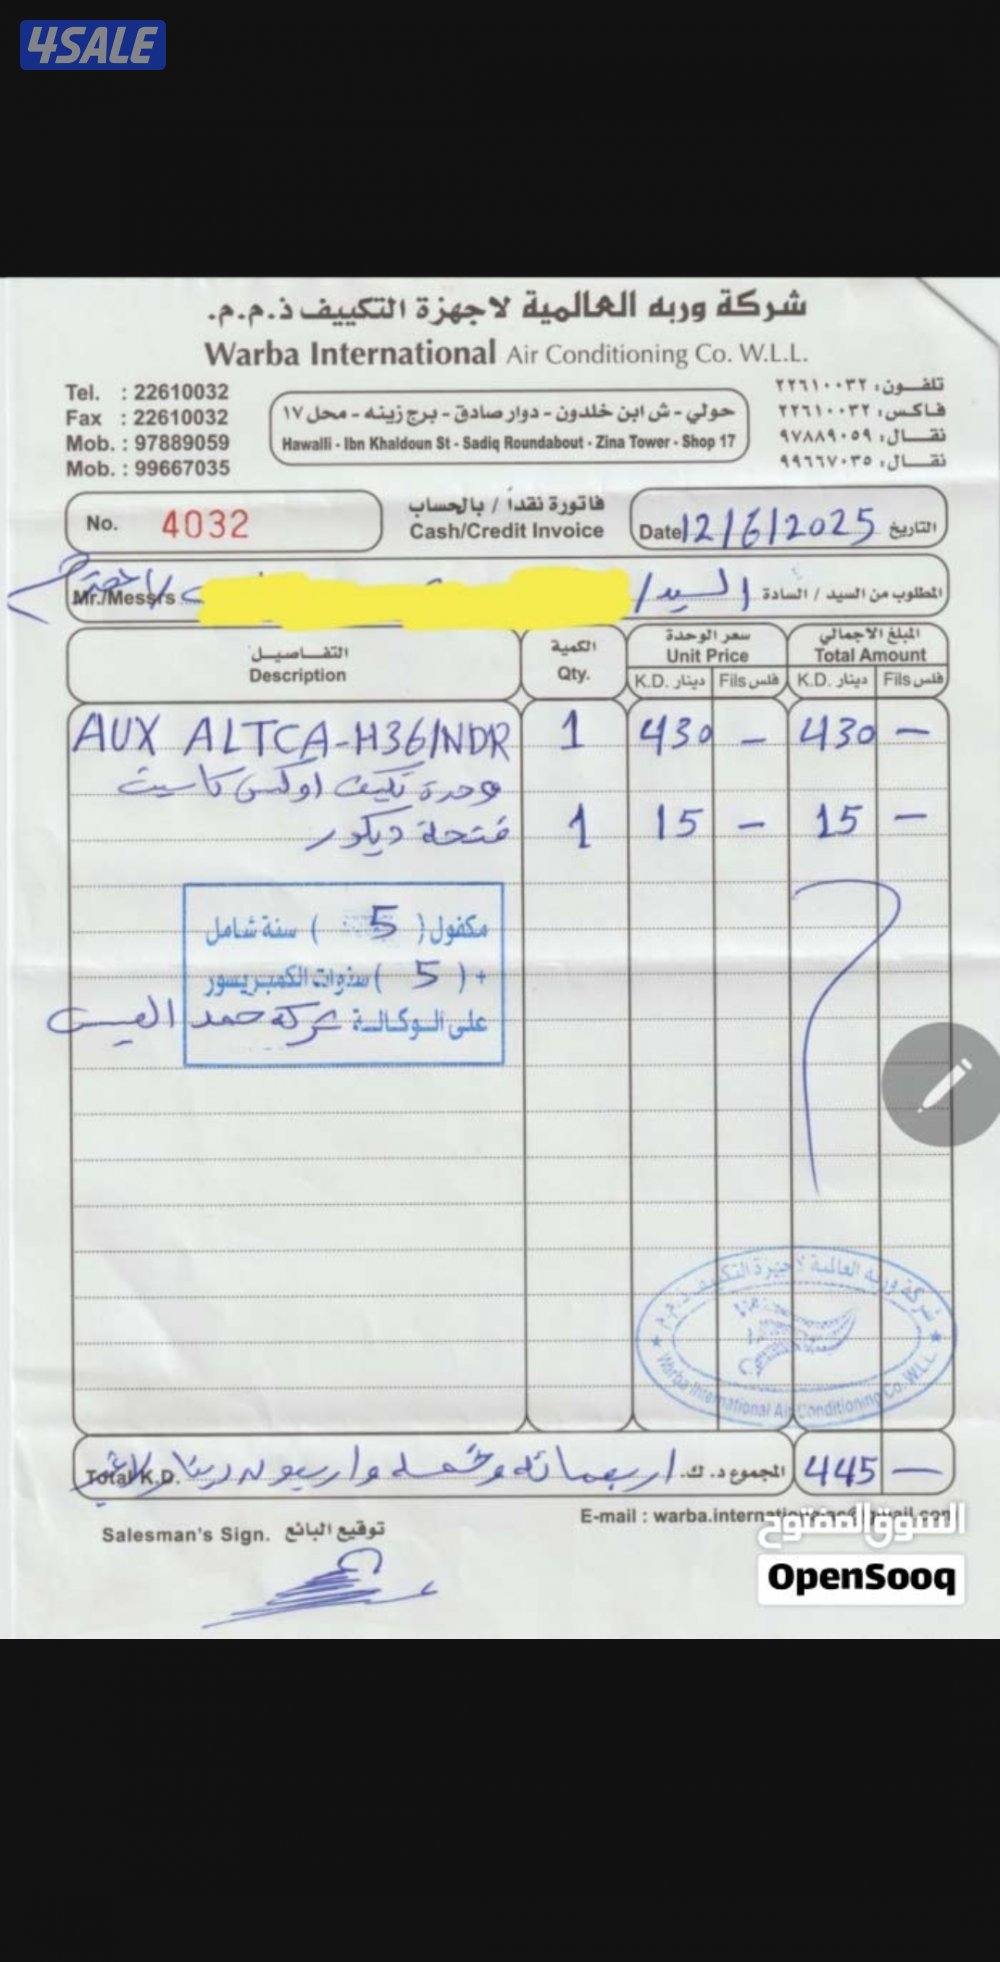 4SALE
شركة وربه العالمية لاجهزة التكييف ذ.م.م.
Warba International Air Conditioning Co. W.L.L.
Tel. : 22610032
Fax : 22610032
Mob. : 97889059
Mob. : 99667035
حولي - ش ابن خلدون - دوار صادق - برج زينه - محل ١٧
Hawalli - Ibn Khaldoun St - Sadiq Roundabout - Zina Tower - Shop 17
تلفون: ٢٢٦١٠٠٣٢
فاكس: ٢٢٦١٠٠٣٢
نقال: ٩٧٨٨٩٠٥٩
نقال: ٩٩٦٦٧٠٣٥
No. 4032
فاتورة نقداً / بالحساب
Cash/Credit Invoice
Date 12/6/2025 التاريخ
المطلوب من السيد / السادة السيد/ Mr./Messrs
التفاصيل
Description
الكمية
Qty.
سعر الوحدة
Unit Price
K.D. دينار Fils فلس
المبلغ الاجمالي
Total Amount
K.D. دينار Fils فلس
AUX ALTCA-H36/NDR 1 430 - 430 -
وحدة تكيف اوكس كاسيت
فتحة ديكور 1 15 - 15 -
مكفول ( 5 ) سنة شامل
+ ( 5 ) سنوات الكمبريسور
على الوكالة شركة حمد العيسى
شركة وربه العالمية لاجهزة التكييف ذ.م.م
Warba International Air Conditioning Co. W.L.L
Total K.D. المجموع د.ك. اربعمائة وخمسة واربعون دينار لاغير 445 -
Salesman's Sign. توقيع البائع
E-mail : warba.internationalac@gmail.com
السوق المفتوح
OpenSooq